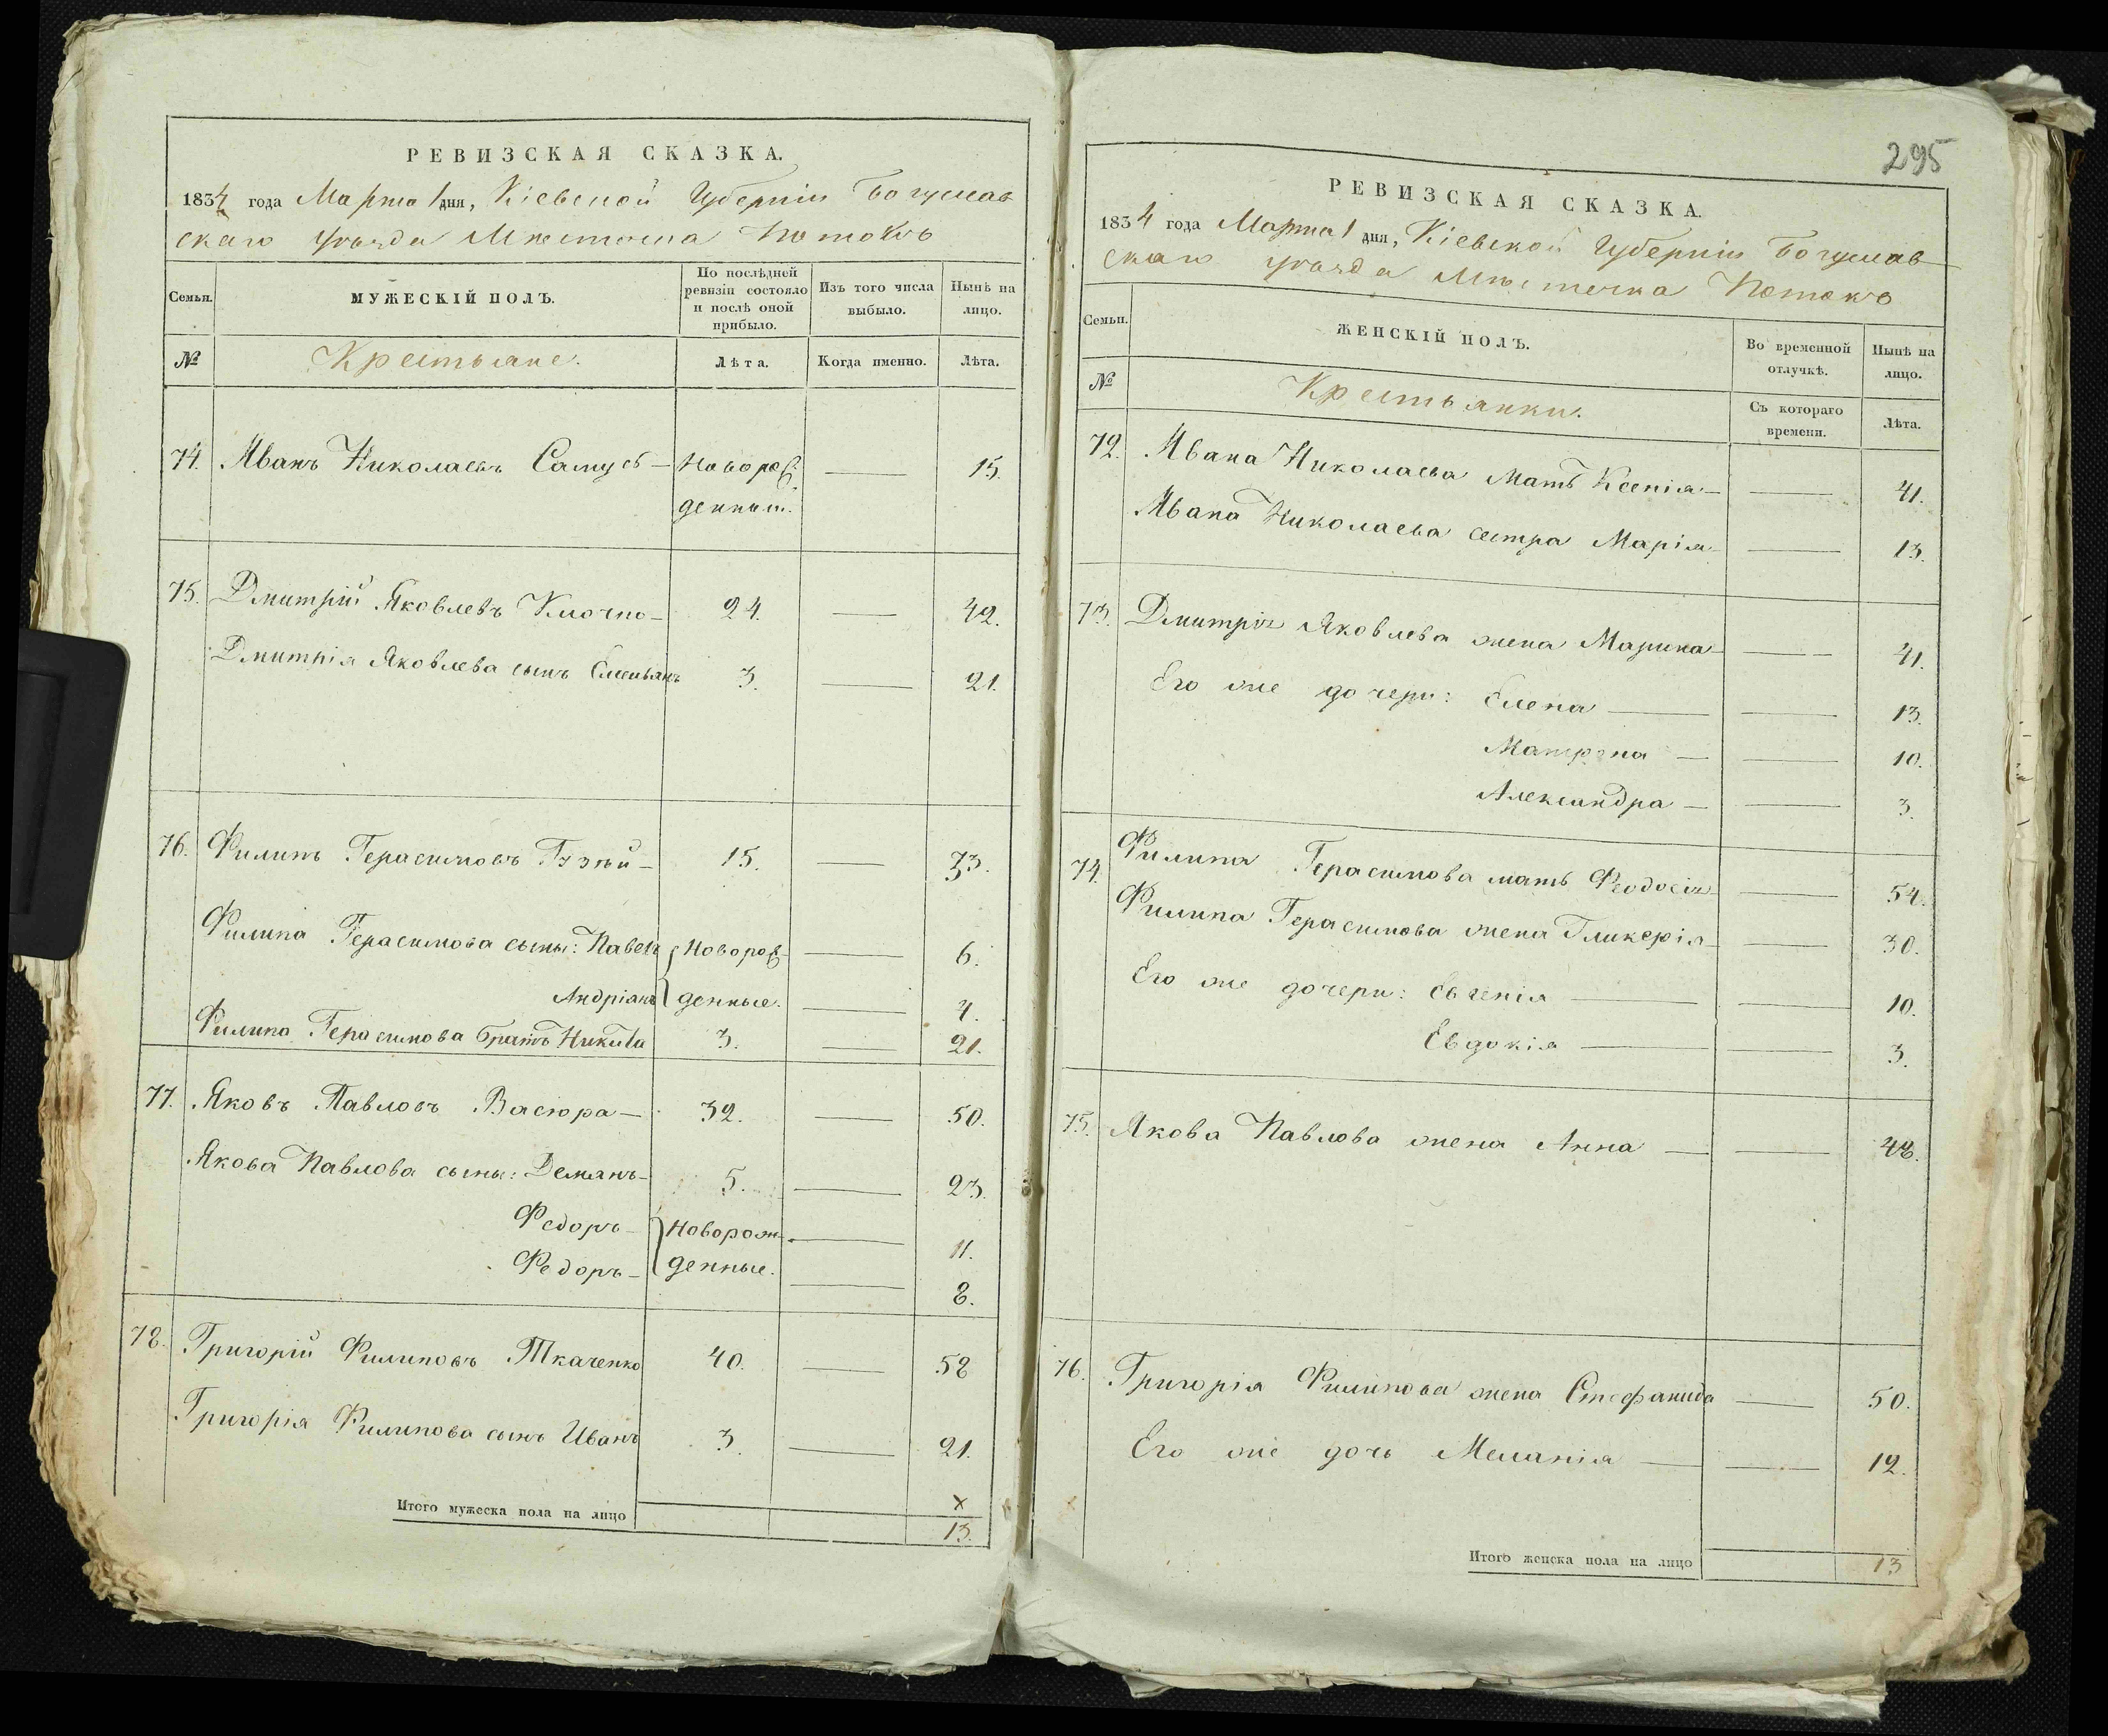 РЕВИЗСКАЯ СКАЗКА.
1834 года Марта 1 дня, Кіевской Губерніи Богуслав
скаго уѣзда Мѣстечка Потокъ
Семьи.
МУЖЕСКІЙ ПОЛЪ.
По послѣдней ревизіи состояло и послѣ оной прибыло.
Изъ того числа выбыло.
Нынѣ на лицо.
№
Крестьяне.
Лѣта.
Когда именно.
Лѣта.
74. Иванъ Николаевъ Самусь — Новорож — 15.
денный.
75. Дмитрій Яковлевъ Клочко — 24. — 42.
Дмитрія Яковлева сынъ Емельянъ 3. — 21.
76. Филипъ Герасимовъ — 15. — 33.
Филипа Герасимова сыны: Павелъ Новорож — 6.
Андріанъ денные. — 4.
Филипа Герасимова братъ Никита 3. — 21.
77. Яковъ Павловъ Васюра — 32. — 50.
Якова Павлова сыны: Демянъ — 5. — 23.
Федоръ — Новорож — 11.
Федоръ — денные. — 8.
78. Григорій Филиповъ Ткаченко 40. — 58
Григорія Филипова сынъ Иванъ 3. — 21.
х
Итого мужеска пола на лицо 13.
295
РЕВИЗСКАЯ СКАЗКА.
1834 года Марта 1 дня, Кіевской Губерніи Богуслав
скаго уѣзда Мѣстечка Потокъ
Семьи.
ЖЕНСКІЙ ПОЛЪ.
Во временной отлучкѣ.
Нынѣ на лицо.
№
Крестьянки.
Съ котораго времени.
Лѣта.
72. Ивана Николаева мать Ксенія — — 41.
Ивана Николаева сестра Марія — — 13.
73. Дмитрія Яковлева жена Марина — — 41.
Его же дочери: Елена — — 13.
Матрона — — 10.
Александра — — 3.
74. Филипа Герасимова мать Феодосія — 54.
Филипа Герасимова жена Гликерія — — 30.
Его же дочери: Евгенія — — 10.
Евдокія — — 3.
75. Якова Павлова жена Анна — — 48.
76. Григорія Филипова жена Стефанида — 50.
Его же дочь Меланія — — 12.
Итого женска пола на лицо 13